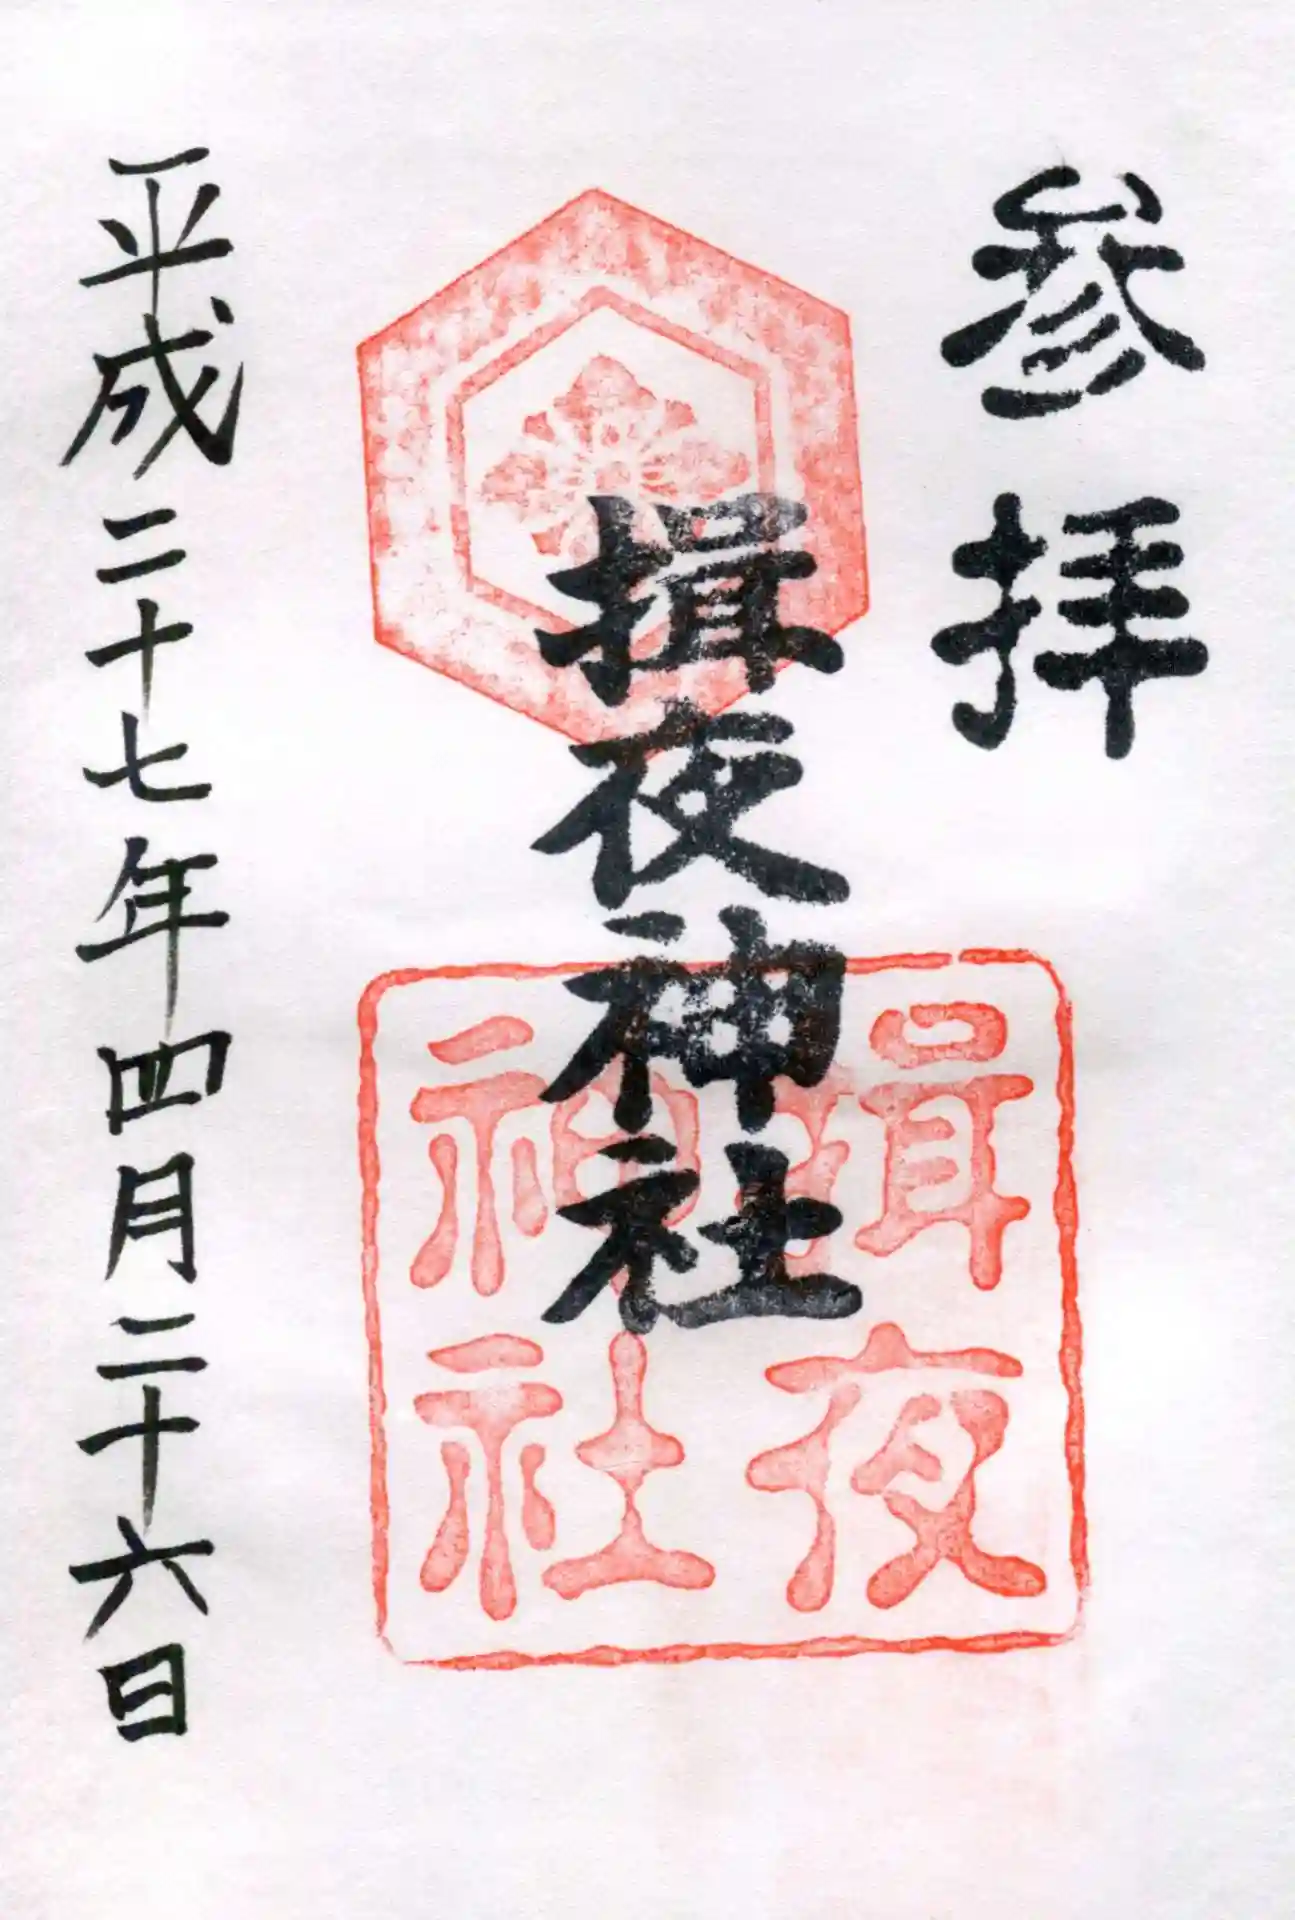 参拝
揖夜神社
揖夜
神社
平成二十七年四月二十六日